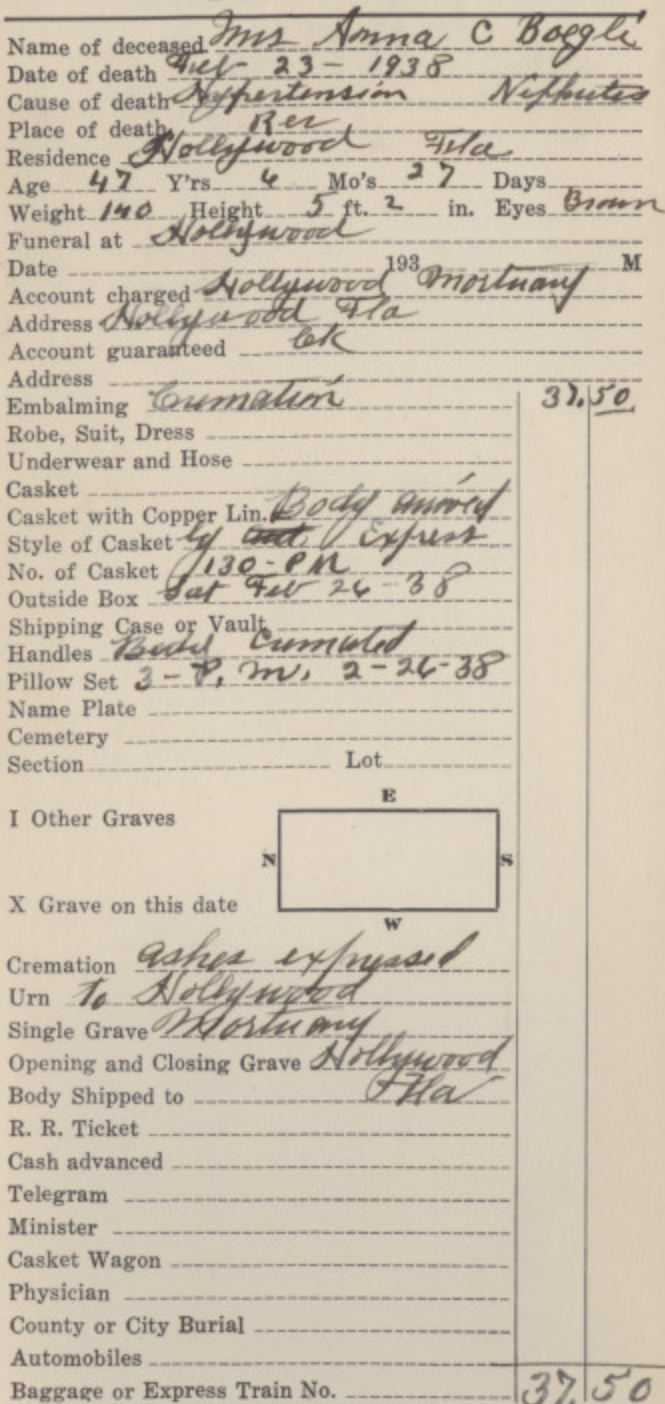 Name of deceased Mrs Anna C Boegli
Date of death Feb 23 - 1938
Cause of death Hypertension Niphutes
Place of death Res
Residence Hollywood Fla
Age 47 Y'rs 6 Mo's 27 Days
Weight 140 Height 5 ft. 2 in. Eyes Brown
Funeral at Hollywood
Date 193 M
Account charged Hollywood Mortuary
Address Hollywood Fla
Account guaranteed Ck
Address
Embalming Cremation 37.50
Robe, Suit, Dress
Underwear and Hose
Casket
Casket with Copper Lin. Body arrived
Style of Casket by Express
No. of Casket 130-PM
Outside Box Sat Feb 26-38
Shipping Case or Vault
Handles Body Cremated
Pillow Set 3-P. m. 2-26-38
Name Plate
Cemetery
Section Lot
E
I Other Graves
N S
X Grave on this date
W
Cremation ashes expressed
Urn to Hollywood
Single Grave Mortuary
Opening and Closing Grave Hollywood
Body Shipped to Fla
R. R. Ticket
Cash advanced
Telegram
Minister
Casket Wagon
Physician
County or City Burial
Automobiles
Baggage or Express Train No. 37 50